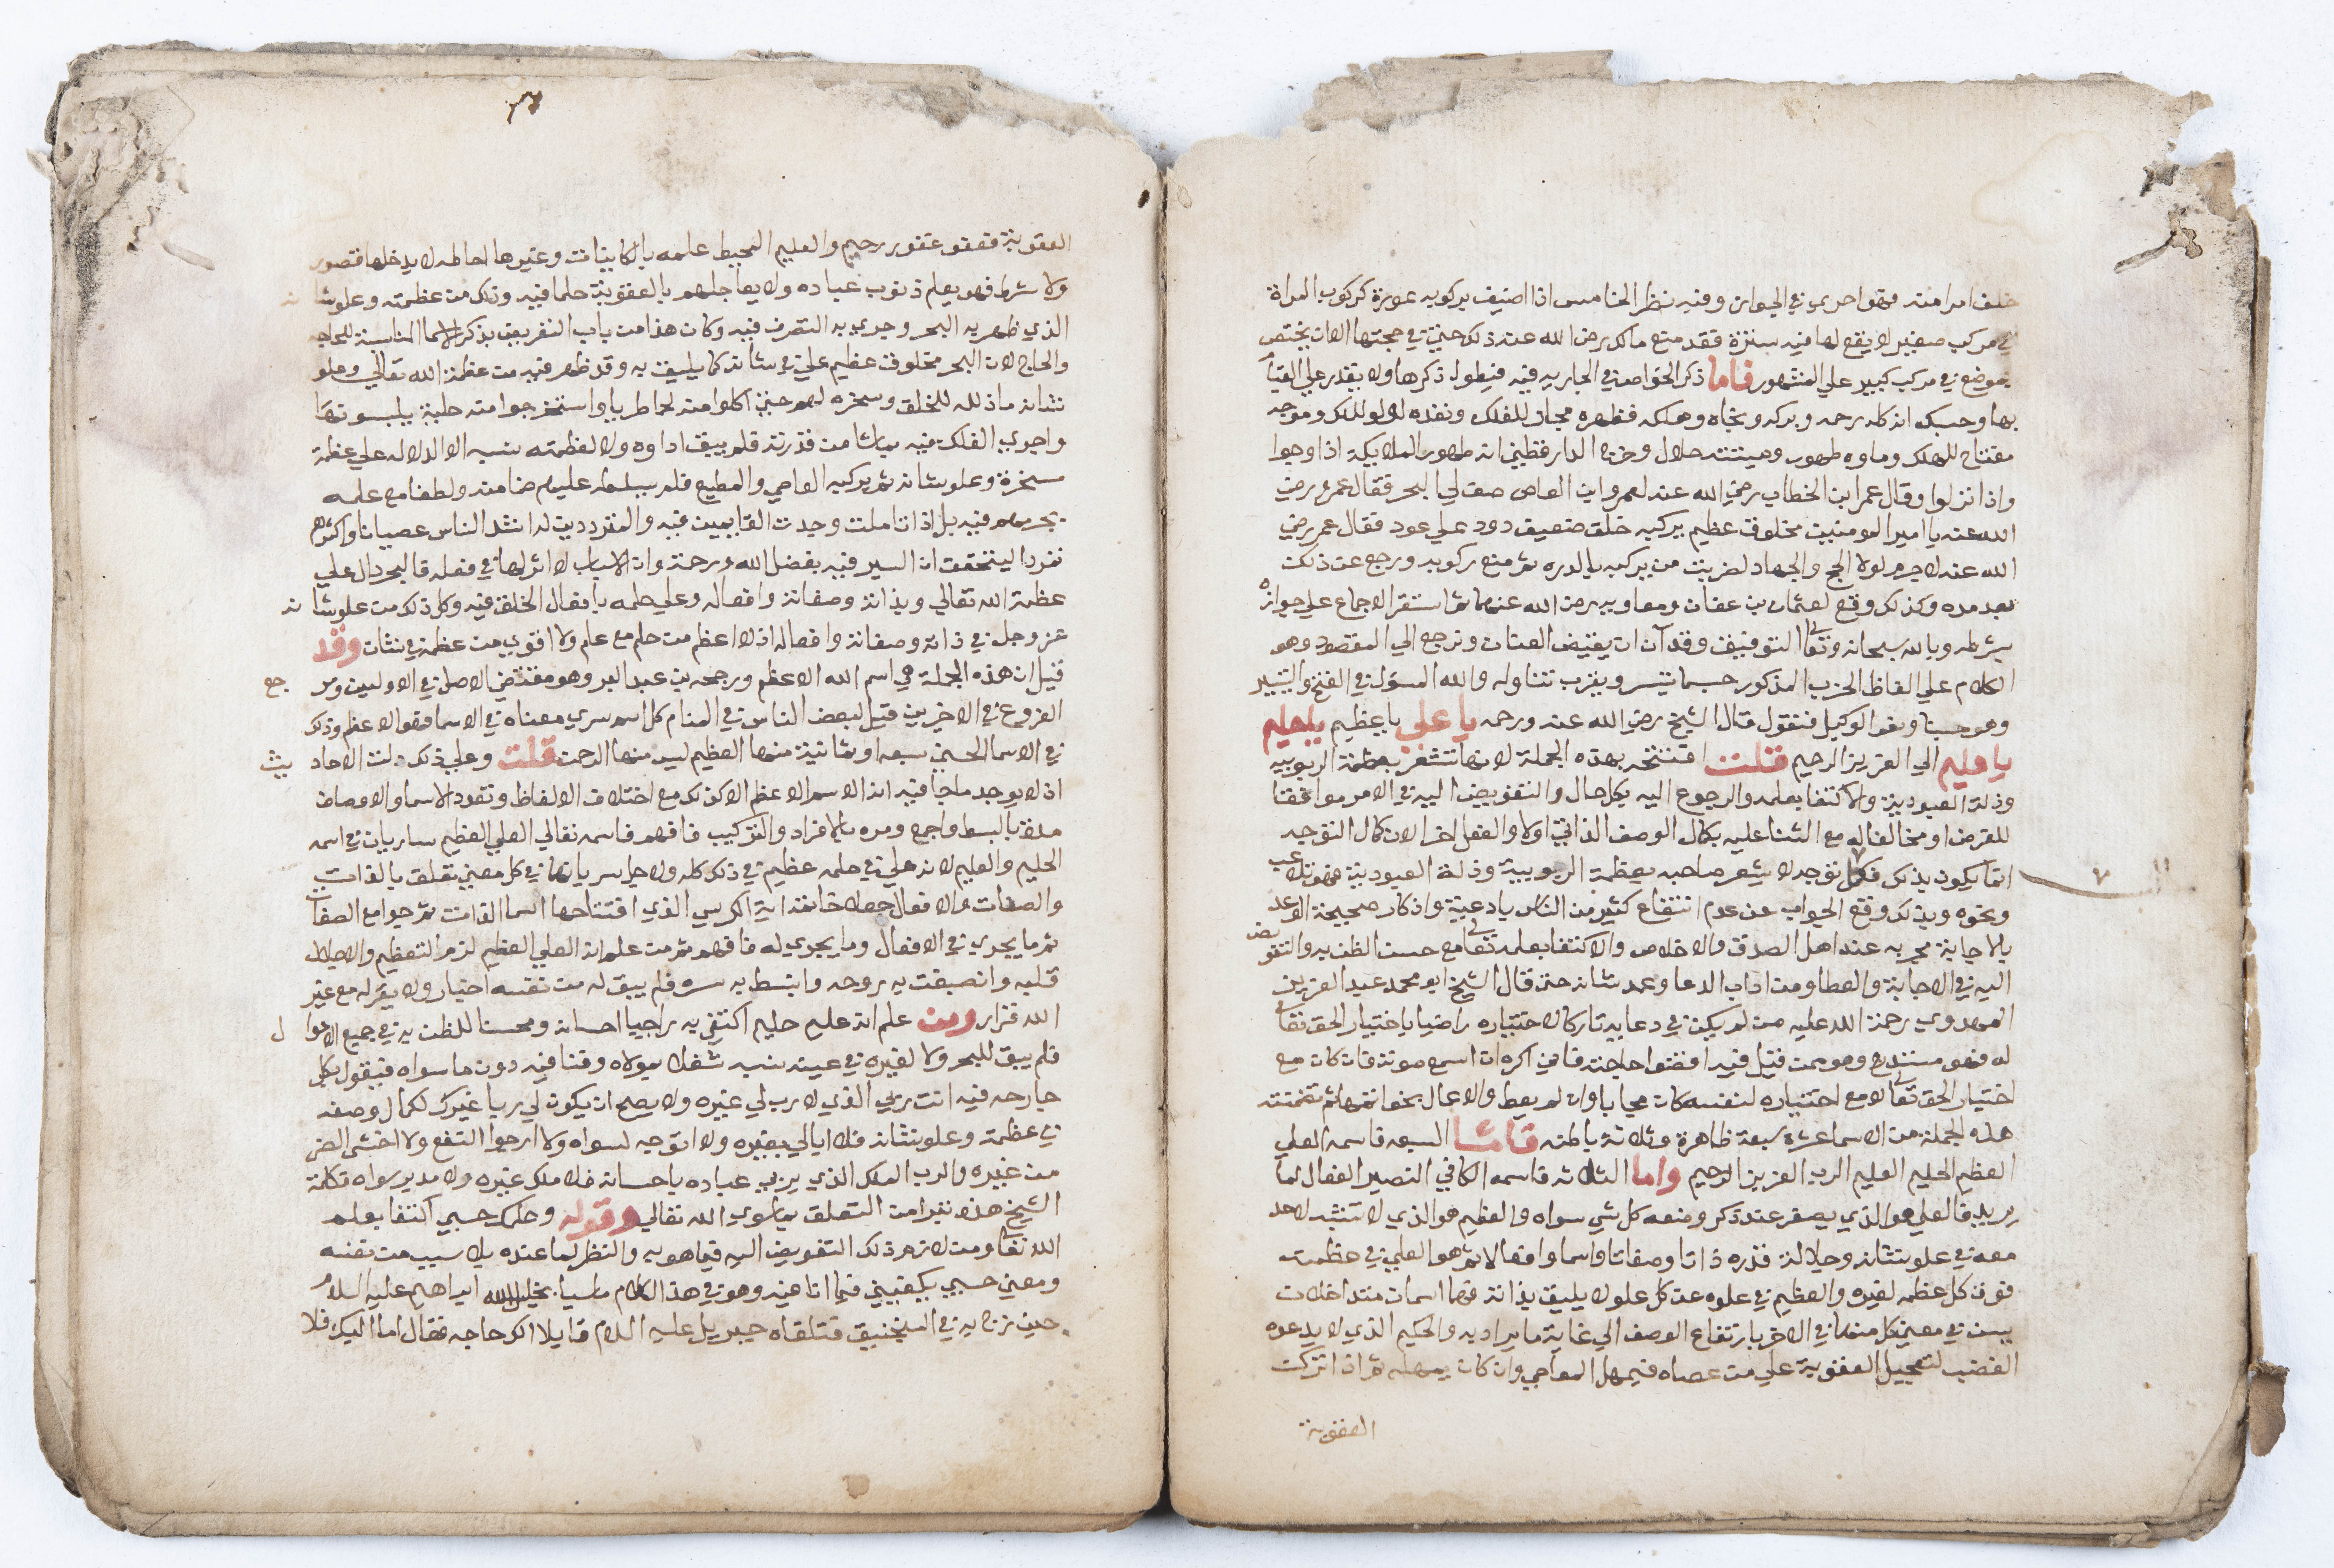 خلف امرا منه فهو احرى في الجواز وفيه نظر الخامس اذا اضيف بركوبه عورة كركوب المراة
في مركب صغير لا يقع لها فيه سترة فقد منع مالك رضي الله عنه ذلك حتى في حجتها الا ان يختص
بموضع في مركب كبير على المشهور فاما ذكر الخواص في الجاريه فيه فيطول ذكرها ولا يقدر على القيام
بها وحسبك انه كله رحمه وبركه ونجاه وهلكه فظهره مجاز للفلك وبعده لولو للملك وموجه
مفتاح للهلك وماوه طهور وميتته حلال
واذا نزلوا وقال عمر ابن الخطاب رضي الله عنه لعمرو ابن العاص صف لي البحر فقال عمرو رضي
الله عنه يا امير المومنين مخلوق عظيم يركبه خلق ضعيف دود على عود فقال عمر رضي
الله عنه لا جرم لولا الحج والجهاد لضربت من يركبه بالدره ثم منع ركوبه ورجع عن ذلك
بعد مده وكذلك وقع لعثمان بن عفان ومعاويه رضي الله عنهما ثم استقر الاجماع على جوازه
بشرطه وبالله سبحانه وتعالى التوفيق وقد آن ان يقبض العنان ونرجع الى المقصود وهو
الكلام على الفاظ الحزب المذكور حسبما تيسر ويقرب تناوله والله المسؤل في الفتح والتيسير
وهو حسبنا ونعم الوكيل فنقول قال الشيخ رضي الله عنه ورحمه يا علي يا عظيم يا حليم
يا عليم الى العزيز الرحيم قلت افتتح بهذه الجملة لانها تشعر بعظمة الربوبيه
وذلة العبودية والاكتفا بعلمه والرجوع اليه بكل حال والتفويض اليه في الامر موافقا
للغرض او مخالفا له مع الثنا عليه بكمال الوصف الذاتي اولا والفعل اخرا لان كمال التوجه
انما يكون بذلك فكل توجه لا يشعر صاحبه بعظمة الربوبية وذلة العبودية فهو تلاعب
ونحوه وبذلك وقع الجواب عن عدم انتفاع كثير من الناس بادعية واذكار صحيحة الوعد
بالاجابة مجربه عند اهل الصدق والاخلاص والاكتفا بعلمه تعالى مع حسن الظن به والتفويض
اليه في الاجابة والعطا ومن اداب الدعا وعمد شانه حتى قال الشيخ ابو محمد عبد العزيز
المهدوي رحمة الله عليه من لم يكن في دعايه تاركا لاختياره راضيا باختيار الحق تعالى
له فهو مستدرج وهو ممن قيل فيه اقضوا حاجته فاني اكره ان اسمع صوته فان كان مع
اختيار الحق تعالى لا مع اختياره لنفسه كان مجابا وان لم يعط والاعمال بخواتمها ثم تضمنت
هذه الجملة من الاسما عشرة سبعة ظاهرة وثلاثة باطنه فاما السبعه فاسمه العلي
العظيم الحليم العليم الرب العزيز الرحيم واما الثلاثه فاسمه الكافي النصير الفعال لما
يريد فالعلي هو الذي يصغر عند ذكر وصفه كل شي سواه والعظيم هو الذي لا تنسبه لاحد
معه في علو شانه وجلالة قدره ذاتا وصفاتا واسما وافعالا ثم هو العلي في عظمته
فوق كل عظمه لغيره والعظيم في علوه عن كل علو لا يليق بذاته فهما اسمان متداخلان
في معنى كل منهما في الاخر بارتفاع الوصف الى غاية ما يراد به والحكيم الذي لا يدعوه
الغضب لتعجيل العقوبة على من عصاه فيمهل العاصي وان كان يمهله ثم اذا تركت
العقوبة
العقوبة فهو غفور رحيم والعليم المحيط علمه بالكاينات وغيرها احاطه لا يدخلها قصور
ولا شرط فهو يعلم ذنوب عباده ولا يعاجلهم بالعقوبة حلما فيه وذلك من عظمته وعلو شانه
الذي ظهر به البحر وجرى به التصرف فيه وكان هذا من باب التعريض بذكر الاسما المناسبة للحاجه
والحاج لان البحر مخلوق عظيم علي في شانه كما يليق به وقد ظهر فيه من عظمة الله تعالى وعلو
شانه ما ذلله للخلق وسخره لهم حتى اكلوا منه لحما طريا واستخرجوا منه حلية يلبسونها
واجرى الفلك فيه بما شا من قدرته فلم يبق اداوه ولا لعظمته نسبه الا الدلاله على عظمة
مسخره وعلو شانه ثم يركبه العاصي والمطيع فلم يسلطه عليهم حنا منه ولطفا مع علمه
بجرمهم فيه بل اذا تاملت وجدت القايمين فيه والمترددين له اشد الناس عصيانا واكثرهم
تمردا ليتحقق ان السير فيه بفضل الله ورحمته وان الاسباب لا اثر لها في فعله فالبحر دال على
عظمة الله تعالى وبذاته وصفاته وافعاله وعلى حلمه بافعال الخلق فيه وكل ذلك من علو شانه
عز وجل في ذاته وصفاته وافعاله اذ لا اعظم من حلم مع علم ولا اقوى من عظمة في شان وقد
قيل ان هذه الجملة هي اسم الله الاعظم ورجحه بن عبد البر وهو مقتضى الاصل في الاولين ومرجع
الفروع في الاخرين قيل لبعض الناس في المنام كل اسم سرى معناه في الاسما فهو الاعظم وذلك
في الاسما الحسنى سبعه او ثمانية منها العظيم ليس منها الرحمن قلت وعلى ذلك دلت الاحاديث
اذ لا يوجد ما جا فيه انه الاسم الاعظم الا كذلك مع اختلاف الالفاظ وتعدد الاسما والاوصاف
مرة بالبسط واجمع ومره بالافراد والتركيب فافهم فاسمه تعالى العلي العظيم ساريان في اسمه
الحليم والعليم لانه علي في حلمه عظيم في ذلك كله ولاجل سريانها في كل معنى تعلق بالذات
والصفات والافعال جعلا خاتمة اية الكرسي الذي افتتاحها اسما الذات ثم جوامع الصفات
ثم ما يجري في الافعال وما يجري له فافهم ثم من علم انه العلي العظيم لزم التعظيم والاجلال
قلبه وانصبغت به روحه وانبسط به سره فلم يبق له من نفسه اختيار ولا يقر له مع غير
الله قرار ومن علم انه عليم حليم اكتفى به راجيا احسانه ومحسنا للظن به في جميع الاحوال
فلم يبق للبحر ولا لغيره في عينه نسبه شغلا بمولاه وفنا فيه دون ما سواه فيقول بكل
جارحه فيه انت ربي الذي لا رب لي غيره ولا يصح ان يكون لي ربا غيرك لكمال وصفه
في عظمته وعلو شانه فلا ابالي بغيره ولا اتوجه لسواه ولا ارجوا النفع ولا اخشى الضر
من غيره والرب الملك الذي يربي عباده باحسانه فلا ملك غيره ولا مدبر سواه فكانه
الشيخ هذه تبرا من التعلق بما سوى الله تعالى وقوله وعلمك حسبي اكتفا بعلم
الله تعالى ومن لازم ذلك التفويض اليه فيما هو به والنظر لما عنده بلا سبب من نفسه
ومعنى حسبي يكفيني فيما انا فيه وهو في هذا الكلام ماسيا بخليل الله ابراهيم عليه السلام
حين زج به في المنجنيق فتلقاه جبريل عليه السلام قايلا الك حاجه فقال اما اليك فلا